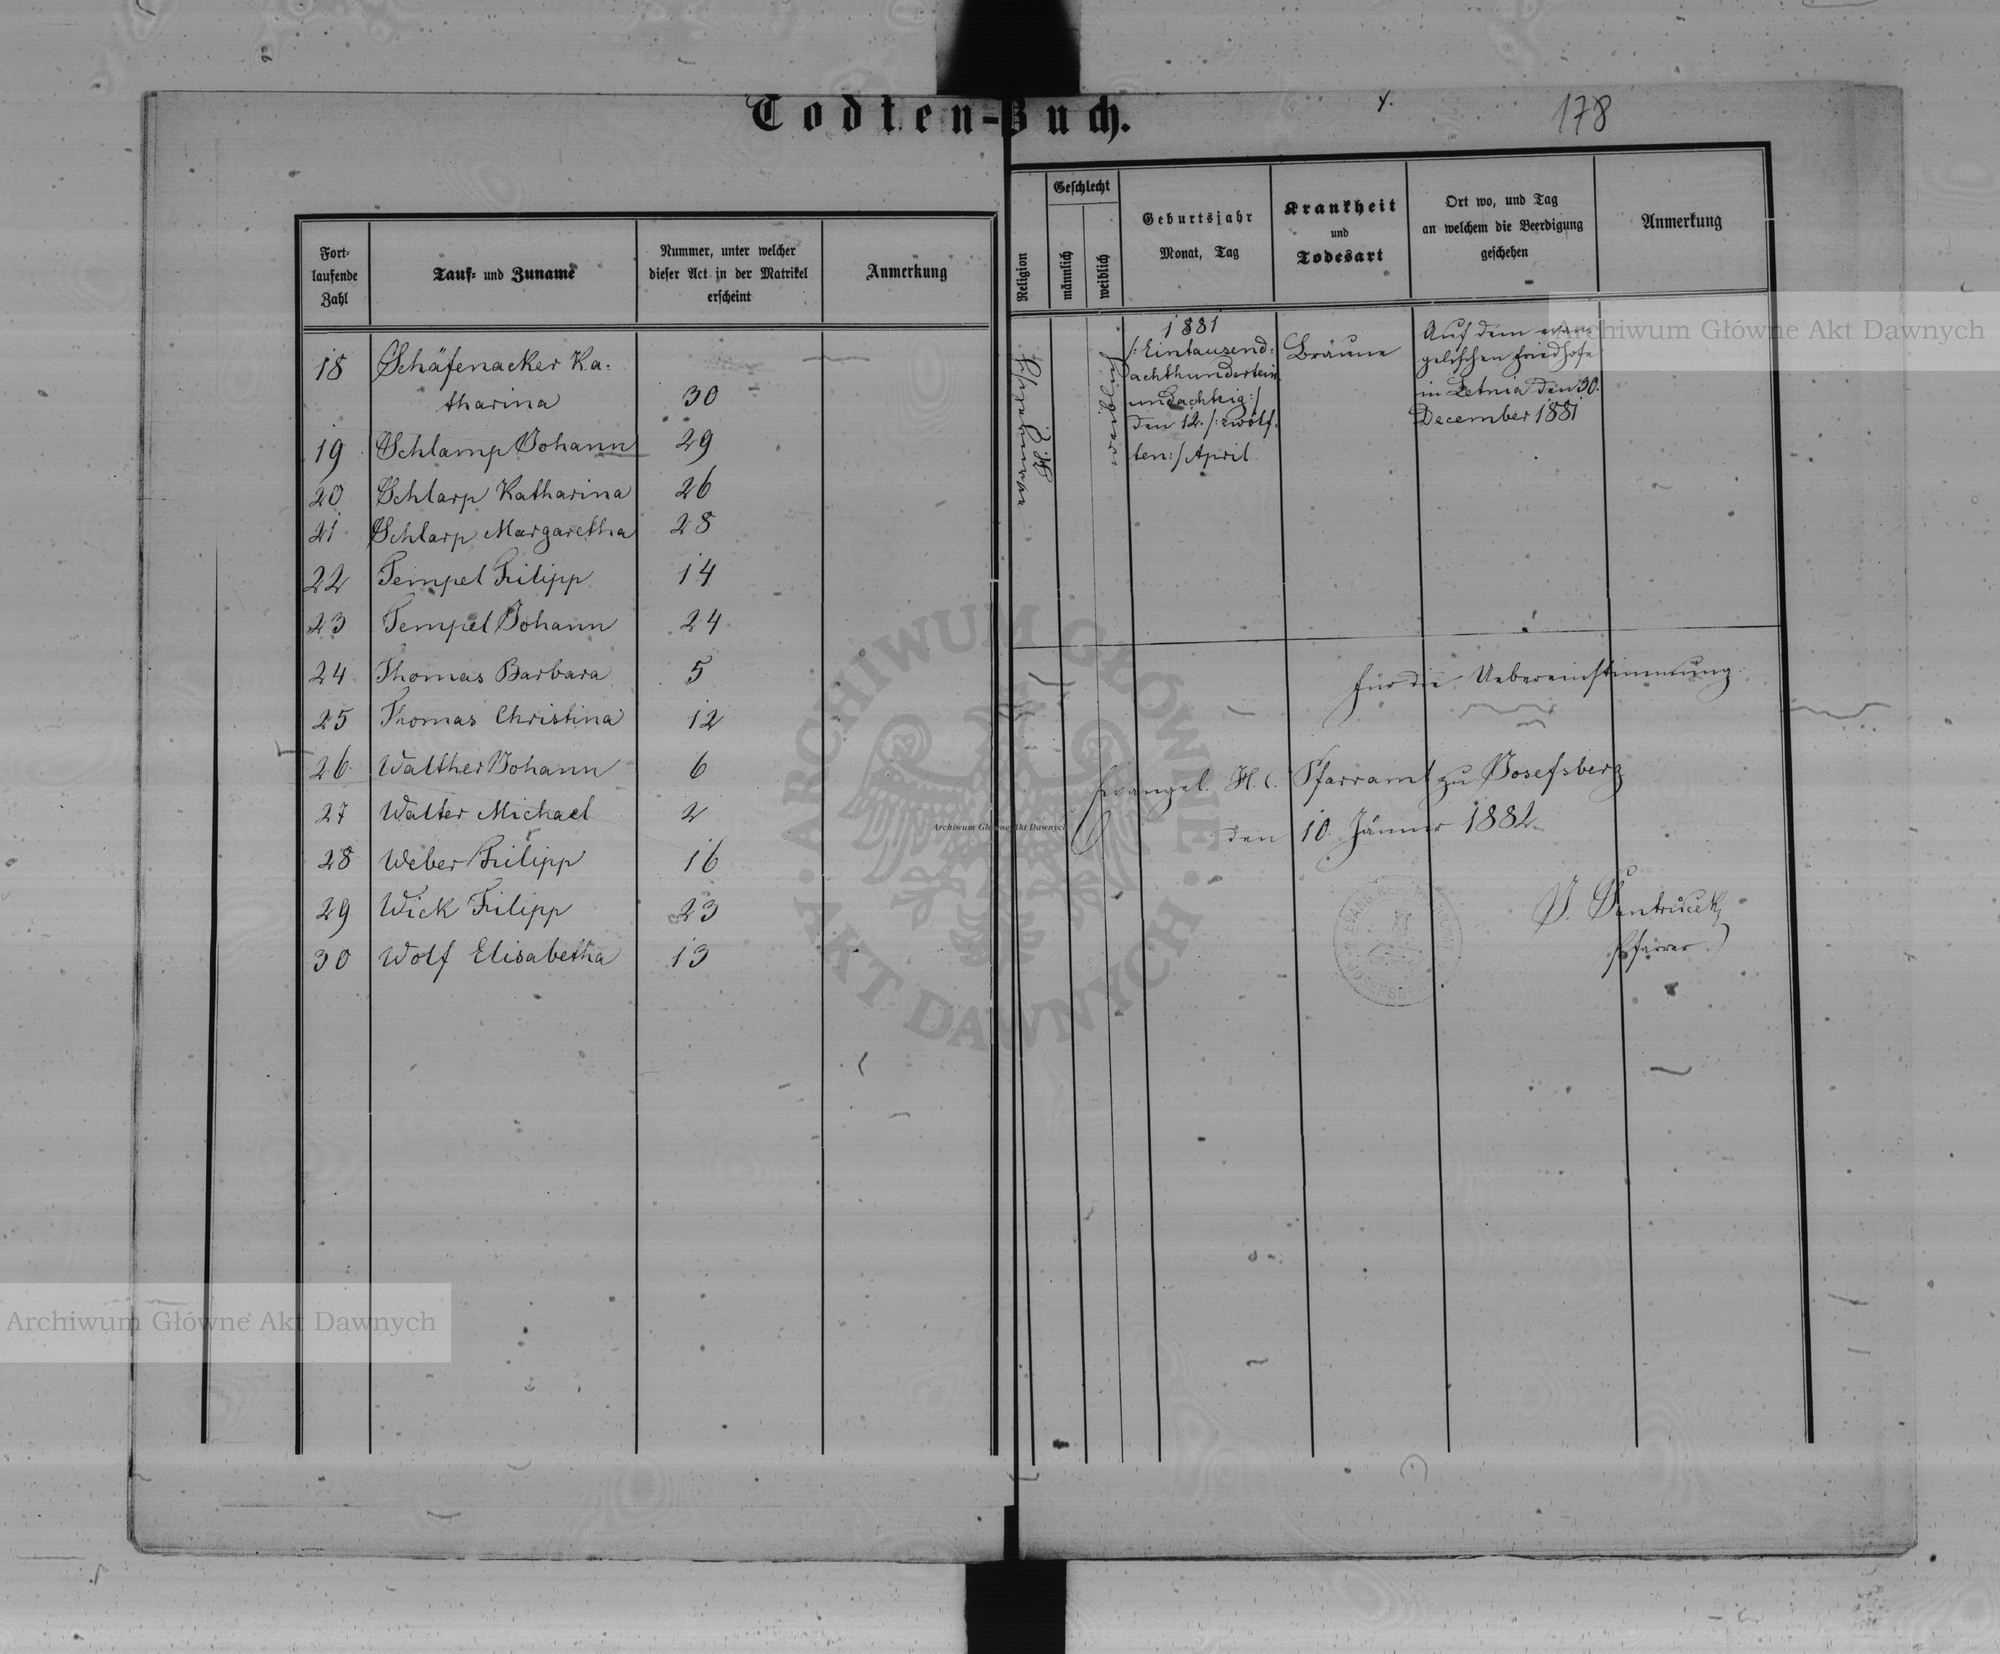 Todten-Buch.
178
Fort-
laufende
Zahl
Tauf- und Zuname
Nummer, unter welcher
dieser Act in der Matrikel
erscheint
Anmerkung
18 Schäfenacker Ka-
tharina 30
19 Schlamp Johann 29
20 Schlarp Katharina 26
21 Schlarp Margaretha 28
22 Tempel Filipp 14
23 Tempel Johann 24
24 Thomas Barbara 5
25 Thomas Christina 12
26 Walther Johann 6
27 Walter Michael 2
28 Weber Filipp 16
29 Wick Filipp 23
30 Wolf Elisabetha 13
Religion
Geschlecht
männlich
weiblich
Geburtsjahr
Monat, Tag
Krankheit
und
Todesart
Ort wo, und Tag
an welchem die Beerdigung
geschehen
Anmerkung
1881
/: Eintausend-
achthundertein
undachtzig :/
den 12. /: zwölf-
ten :/ April
Bräune
Auf dem evan-
gelischen Friedhofe
in Letnia den 30.
December 1881
Für die Uebereinstimmung
Evangel. H. C. Pfarramt zu Josefsberg
den 10. Jänner 1882
Pfarrer
Archiwum Główne Akt Dawnych
Archiwum Główne Akt Dawnych
Archiwum Główne Akt Dawnych
ARCHIWUM GŁÓWNE · AKT DAWNYCH ·